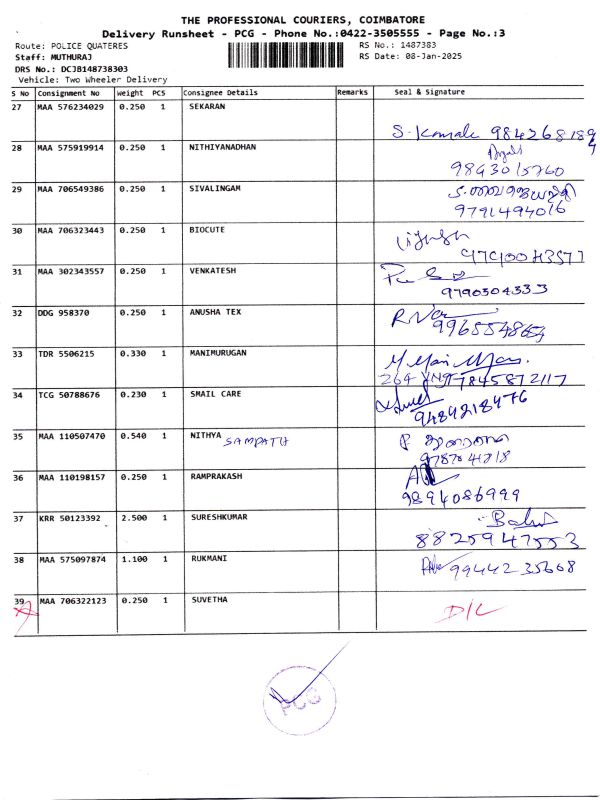 THE PROFESSIONAL COURIERS, COIMBATORE
Delivery Runsheet - PCG - Phone No.:0422-3505555 - Page No.:3
Route: POLICE QUATERES RS No.: 1487383
Staff: MUTHURAJ RS Date: 08-Jan-2025
DRS No.: DCJB148738303
Vehicle: Two Wheeler Delivery
S No Consignment No Weight PCS Consignee Details Remarks Seal & Signature
27 MAA 576234029 0.250 1 SEKARAN
S. Kamala
28 MAA 575919914 0.250 1 NITHIYANADHAN
9843015760
29 MAA 706549386 0.250 1 SIVALINGAM
9791494016
30 MAA 706323443 0.250 1 BIOCUTE
31 MAA 302343557 0.250 1 VENKATESH
9790304333
32 DDG 958370 0.250 1 ANUSHA TEX
33 TDR 5506215 0.330 1 MANIMURUGAN
34 TCG 50788676 0.230 1 SMAIL CARE
9484218476
35 MAA 110507470 0.540 1 NITHYA SAMPATH
36 MAA 110198157 0.250 1 RAMPRAKASH
9894086999
37 KRR 50123392 2.500 1 SURESHKUMAR
8825947553
38 MAA 575097874 1.100 1 RUKMANI
9944235668
39 MAA 706322123 0.250 1 SUVETHA D/L
PCG